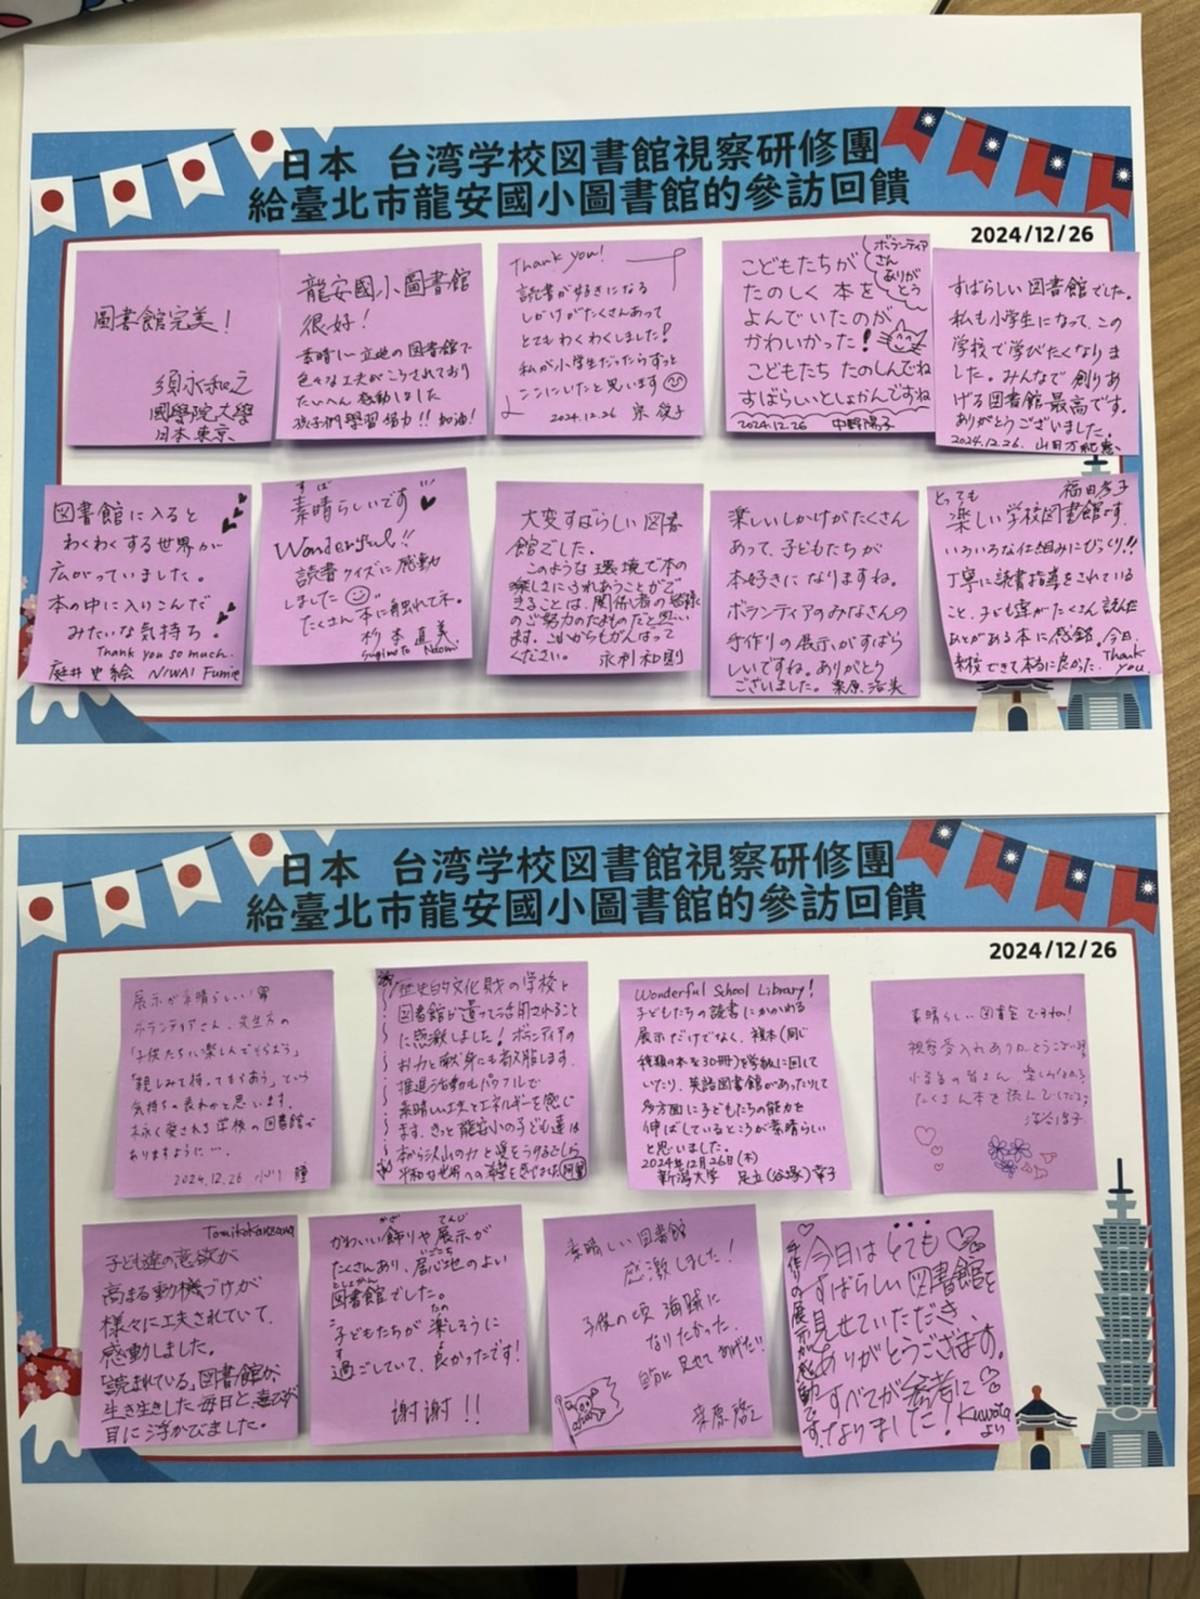 日本 台湾学校図書館視察研修團
給臺北市龍安國小圖書館的參訪回饋
2024/12/26
圖書館完美!
須永和之
國學院大學
日本東京
龍安國小圖書館
很好!
素晴しい立地の図書館で
色々な工夫がこらされており
たいへん感動しました
孩子們學習協力!! 加油!
Thank you!
読書が好きになる
しかけがたくさんあって
とてもわくわくしました!
私が小学生だったらずっと
ここにいたと思います
2024.12.26
こどもたちが
たのしく 本を
よんでいたのが
かわいかった!
こどもたち たのしんでね
すばらしいとしょかんですね
2024.12.26 中野陽子
ボランティア
さん
ありが
とう
すばらしい図書館でした。
私も小学生になって、この
学校で学びたくなりま
した。みんなで創りあ
げる図書館最高です。
ありがとうございました。
2024.12.26. 山田万紀恵
図書館に入ると
わくわくする世界が
広がっていました。
本の中に入りこんだ
みたいな気持ち。
Thank you so much.
庭井史絵 NIWAI Fumie
すば
素晴らしいです
Wonderful!!
読書クイズに感動
しました
たくさん本に触れてネ。
杉本直美
Sugimoto Naomi
大変すばらしい図書
館でした。
このような環境で本の
楽しさにふれあうことがで
きることは、関係者の皆様
のご努力のたまものだと思い
ます。これからもがんばって
ください。 永利和則
楽しいしかけがたくさん
あって、子どもたちが
本好きになりますね。
ボランティアのみなさんの
手作りの展示がすばら
しいですね。ありがとう
ございました。栗原浩美
福田孝子
とっても
楽しい学校図書館です。
いろいろな仕組みにびっくり!!
丁寧に読書指導をされている
こと、子ども達がたくさん読んだ
あとがある本に感銘。今日、
来校できて本当に良かった. Thank
you.
日本 台湾学校図書館視察研修團
給臺北市龍安國小圖書館的參訪回饋
2024/12/26
展示が素晴らしい!
ボランティアさん、先生方の
「子供たちに楽しんでもらおう」
「親しみを持ってもらおう」という
気持ちの表れかと思います。
末永く愛される学校の図書館で
ありますように…。
2024.12.26 小川 瞳
歴史的文化財の学校と
図書館が違って活用されること
に感激しました! ボランティアの
お力と献身にも敬服します。
推進活動もパワフルで
素晴しい工夫とエネルギーを感じ
ます。きっと龍安小の子ども達は
本から沢山の力と愛をうけるでしょう
Wonderful School Library!
子どもたちの読書にかかわる
展示だけでなく、複本(同じ
種類の本を30冊)を学級に回して
いたり、英語図書館があったりして
多方面に子どもたちの能力を
伸ばしているところが素晴らしい
と思いました。
2024年12月26日(木)
新潟大学 足立(谷塚)幸子
素晴らしい図書室ですね!
視察受入れありがとうございます
たくさん本を読んでください
Tomiko Kanzawa
子ども達の意欲が
高まる動機づけが
様々に工夫されていて、
感動しました。
「読まれている」図書館が、
生き生きした毎日と、喜びが
目に浮かびました。
かざ てんじ
かわいい飾りや展示が
いごこち
たくさんあり、居心地のよい
としょかん
図書館でした。
たの
子どもたちが楽しそうに
す よ
過ごしていて、良かったです!
謝謝!!
素晴しい図書館
感激しました!
子供の頃 海賊に
なりたかった。
船に 見せてあげたい!!
栗原
今日は とても
すばらしい図書館を
見せていただき、
ありがとうございます。
すべてが参考に
なりました!
Kuwata
より
手作りの展示が感動です。